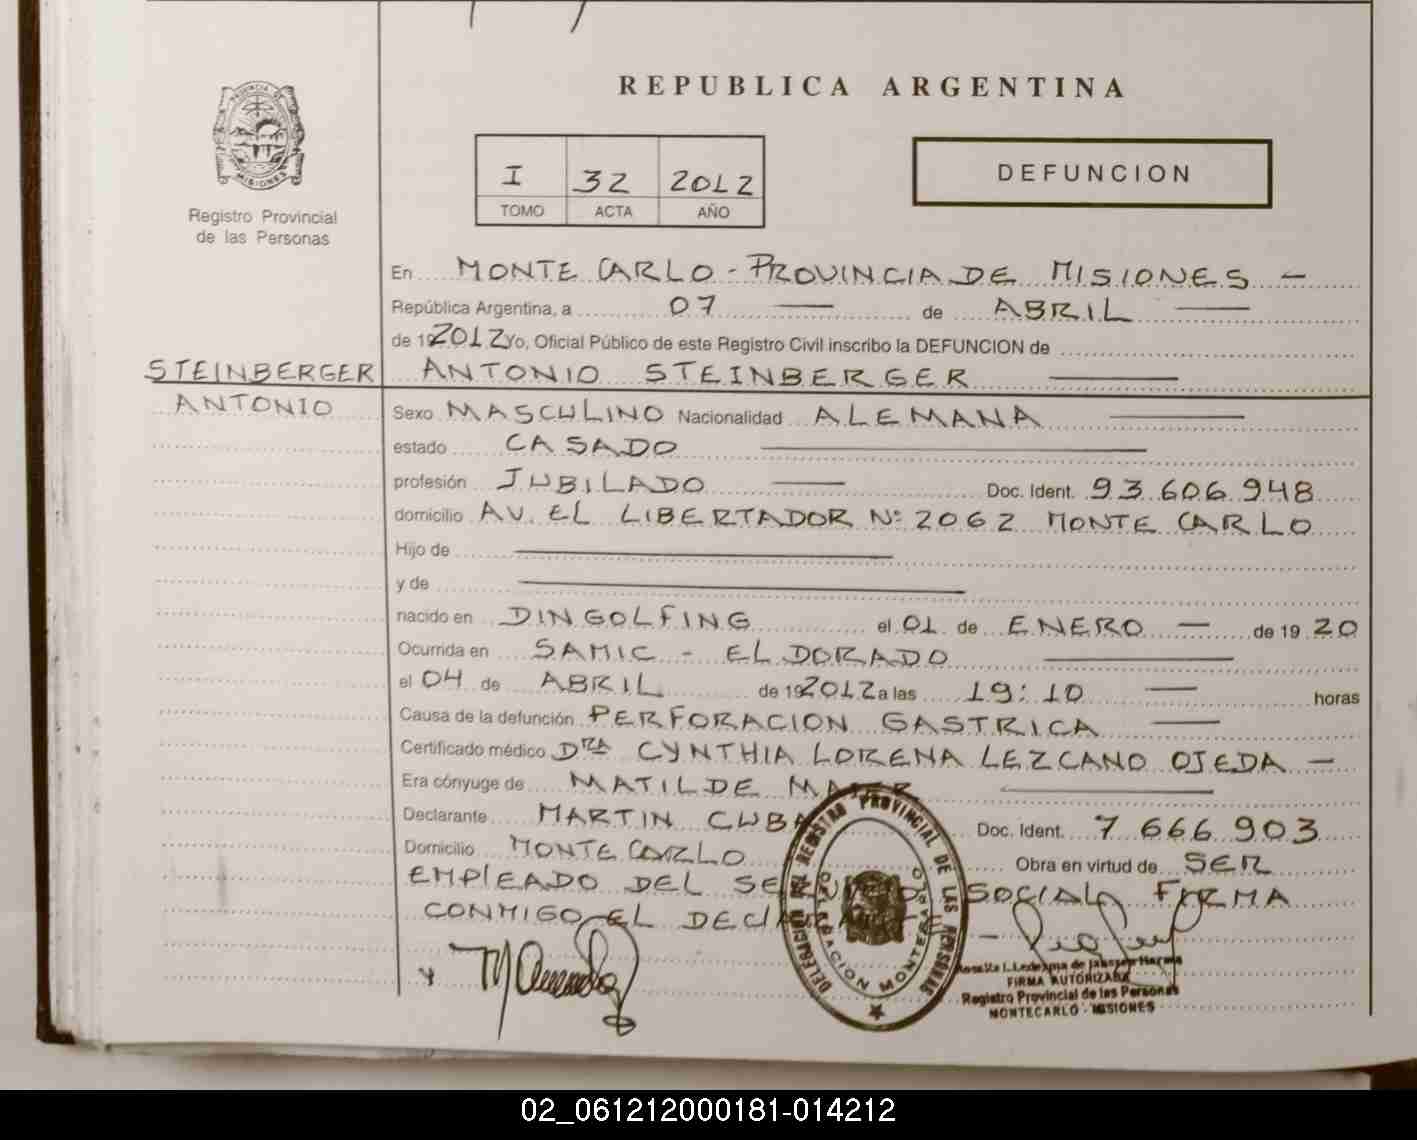 REPUBLICA ARGENTINA
PROVINCIA DE
MISIONES
Registro Provincial
de las Personas
I 32 2012
TOMO ACTA AÑO
DEFUNCION
En MONTE CARLO - PROVINCIA DE MISIONES -
República Argentina, a 07 de ABRIL
de 192012 Yo, Oficial Público de este Registro Civil inscribo la DEFUNCION de
STEINBERGER ANTONIO STEINBERGER
ANTONIO
Sexo MASCULINO Nacionalidad ALEMANA
estado CASADO
profesión JUBILADO Doc. Ident. 93.606.948
domicilio AV. EL LIBERTADOR Nº 2062 MONTE CARLO
Hijo de
y de
nacido en DINGOLFING el 01 de ENERO - de 1920
Ocurrida en SAMIC - ELDORADO
el 04 de ABRIL de 192012 a las 19:10 horas
Causa de la defunción PERFORACION GASTRICA
Certificado médico DRA CYNTHIA LORENA LEZCANO OJEDA -
Era cónyuge de MATILDE
Declarante MARTIN CUBA Doc. Ident. 7.666.903
Domicilio MONTE CARLO Obra en virtud de SER
EMPLEADO DEL SOCIAL FIRMA
CONMIGO EL
y
DELEGACION DEL REGISTRO PROVINCIAL DE LAS PERSONAS
DELEGACION MONTECARLO
FIRMA AUTORIZADA
Registro Provincial de las Personas
MONTECARLO - MISIONES
02_061212000181-014212